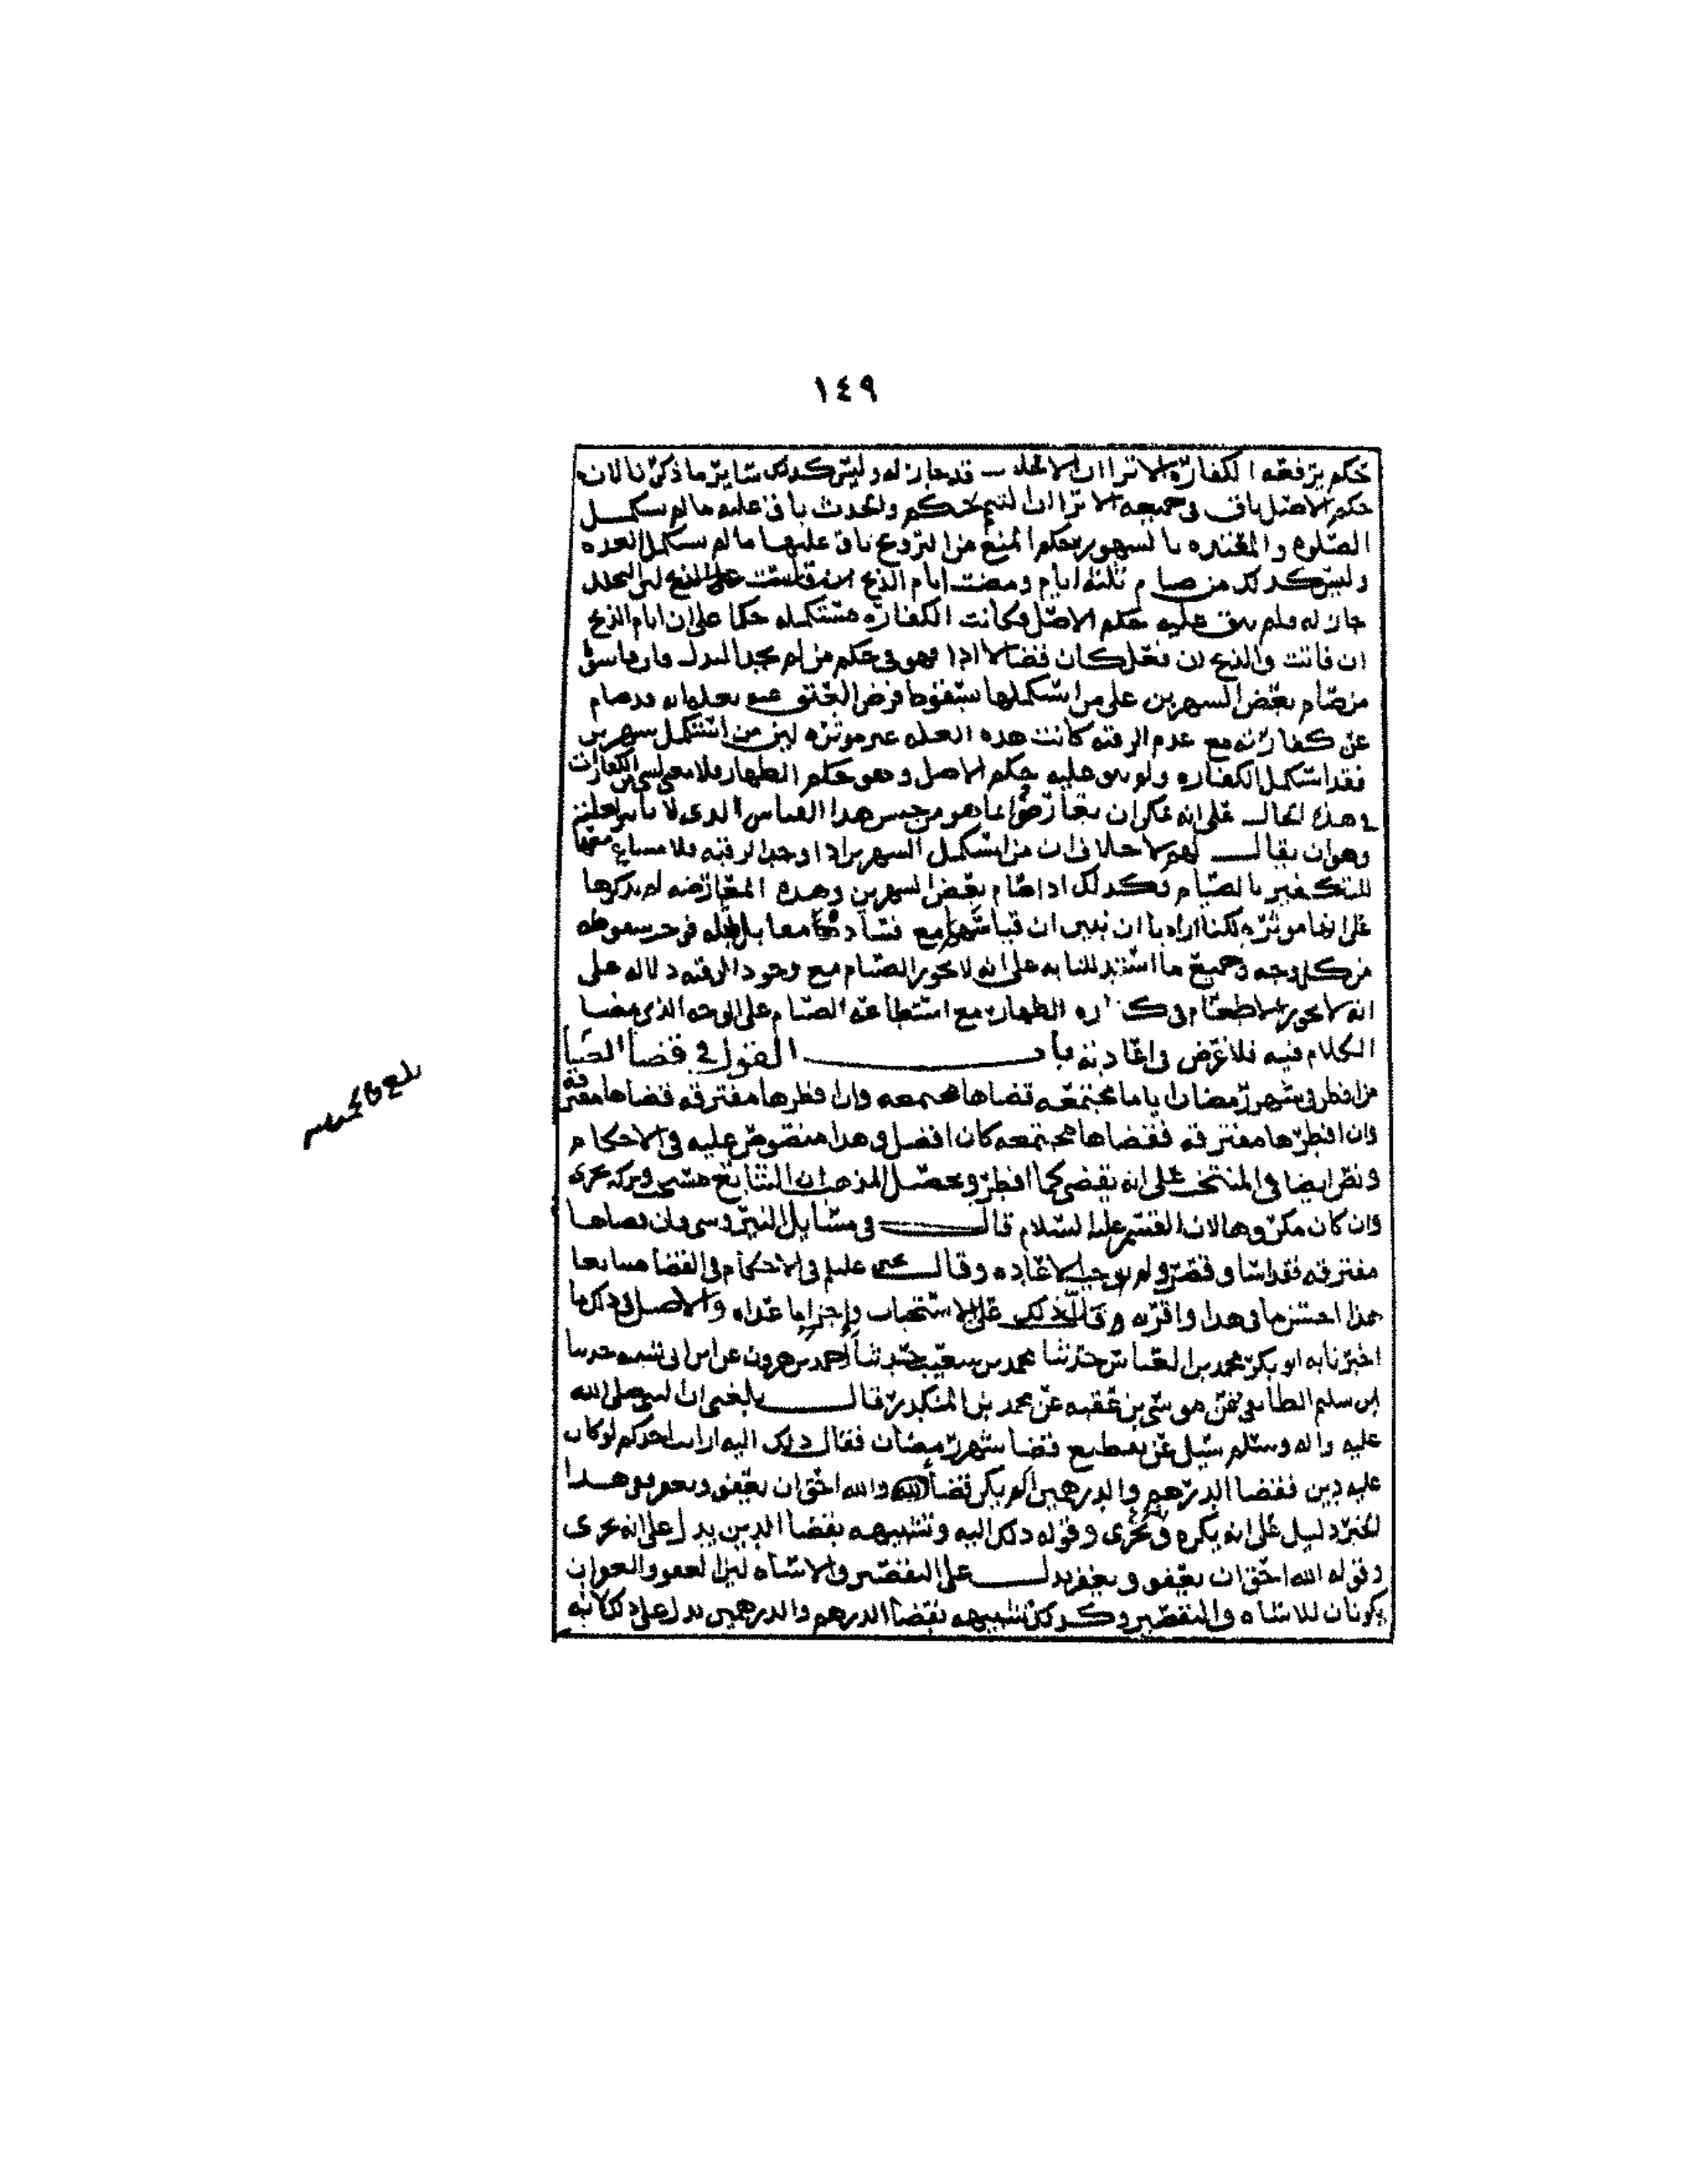 ١٤٩
حكم يرفعه الكفارة الا ترا ان الاحلال قد جاز له وليس كذلك سائر ما ذكرنا لان
حكم الاصل باق في جميعه الا ترا ان التيمم حكم والحدث باق عليه ما لم يستكمل
الصلوة والمعتده بالشهور حكم المنع من التزوج باق عليها ما لم تستكمل العده
وليس كذلك من صام ثلثة ايام ومضت ايام الذبح لان التحلل
جاز له ولم يبق عليه حكم الاصل وكانت الكفاره مستكمله حكما على ان ايام الذبح
ان فاتت والذبح ان فعل كان قضا لا ادا فهو في حكم من لم يجد المبدل
من صام بعض الشهرين على من استكملها سقوط فرض العتق عنه بعله انه قد صام
عن كفارته مع عدم الرقبه كانت هذه العله غير موثره لان من استكمل شهرين
فقد استكمل الكفاره ولم يبق عليه حكم الاصل وهو حكم الظهار فلا معنى لشي من الكفارات
في هذه الحال على انه يمكن ان يعارضوا بما هو من جنس هذا القياس الذي لا تاثير لعلته
وهو ان يقال لهم لا خلاف ان من استكمل الشهرين اذا وجد الرقبه فلا مساغ معها
للتكفير بالصيام فكذلك اذا صام بعض الشهرين وهذه المعارضه لم نذكرها
على انها موثره لكنا اردنا ان نبين ان قياسهم مع فساده معا بل بمثله في حد سقوطه
من كل وجه وجميع ما استدللنا به على انه لا يجوز الصيام مع وجود الرقبه دلاله على
انه لا يجوز الاطعام في كفاره الظهار مع استطاعة الصيام على الوجه الذي مضا
الكلام فيه فلا غرض في اعادته باب القول في قضا الصيا
من افطر في شهر رمضان اياما مجتمعه قضاها مجتمعه وان افطرها مفترقه قضاها مفترقه
وان افطرها مفترقه فقضاها مجتمعه كان افضل وهذا منصوص عليه في الاحكام
ونص ايضا في المنتخب على انه يقضي كما افطر وتحصيل المذهب ان التتابع مستحب وتركه يجزي
وان كان مكروها لان القسم عليه السلام قال في مسائل النيروسي فان قضاها
مفترقه فقد اسا وقصر ولم يوجب الاعاده وقال يحيى عليلم في الاحكام في القضا متتابعا
هذا احسن ما في هذا واقربه فدل ذلك على الاستحباب واجزا ما عداه والاصل في ذلك ما
اخبرنا به ابو بكر محمد بن العباس حدثنا محمد بن سعيد حدثنا احمد بن هرون عن ابن ابي شيبه حدثنا
ابن سليم الطائفي عن موسى بن عقبه عن محمد بن المنكدر قال بلغني ان النبي صلى الله
عليه واله وسلم سئل عن تقطيع قضا شهر رمضان فقال ذلك اليه ارايت احدكم لو كان
عليه دين فقضا الدرهم والدرهمين الم يكن قضا والله احق ان يعفو ويغفر ففي هذا
الخبر دليل على انه يكره ويجزي وقوله ذلك اليه وتشبيهه بقضا الدين يدل على انه يجزي
وقوله الله احق ان يعفو ويغفر يدل على التقصير والاساه لان العفو والغفران
يكونان للاساه والتقصير وكذلك تشبيهه بقضا الدرهم والدرهمين يدل على ذلك لانه